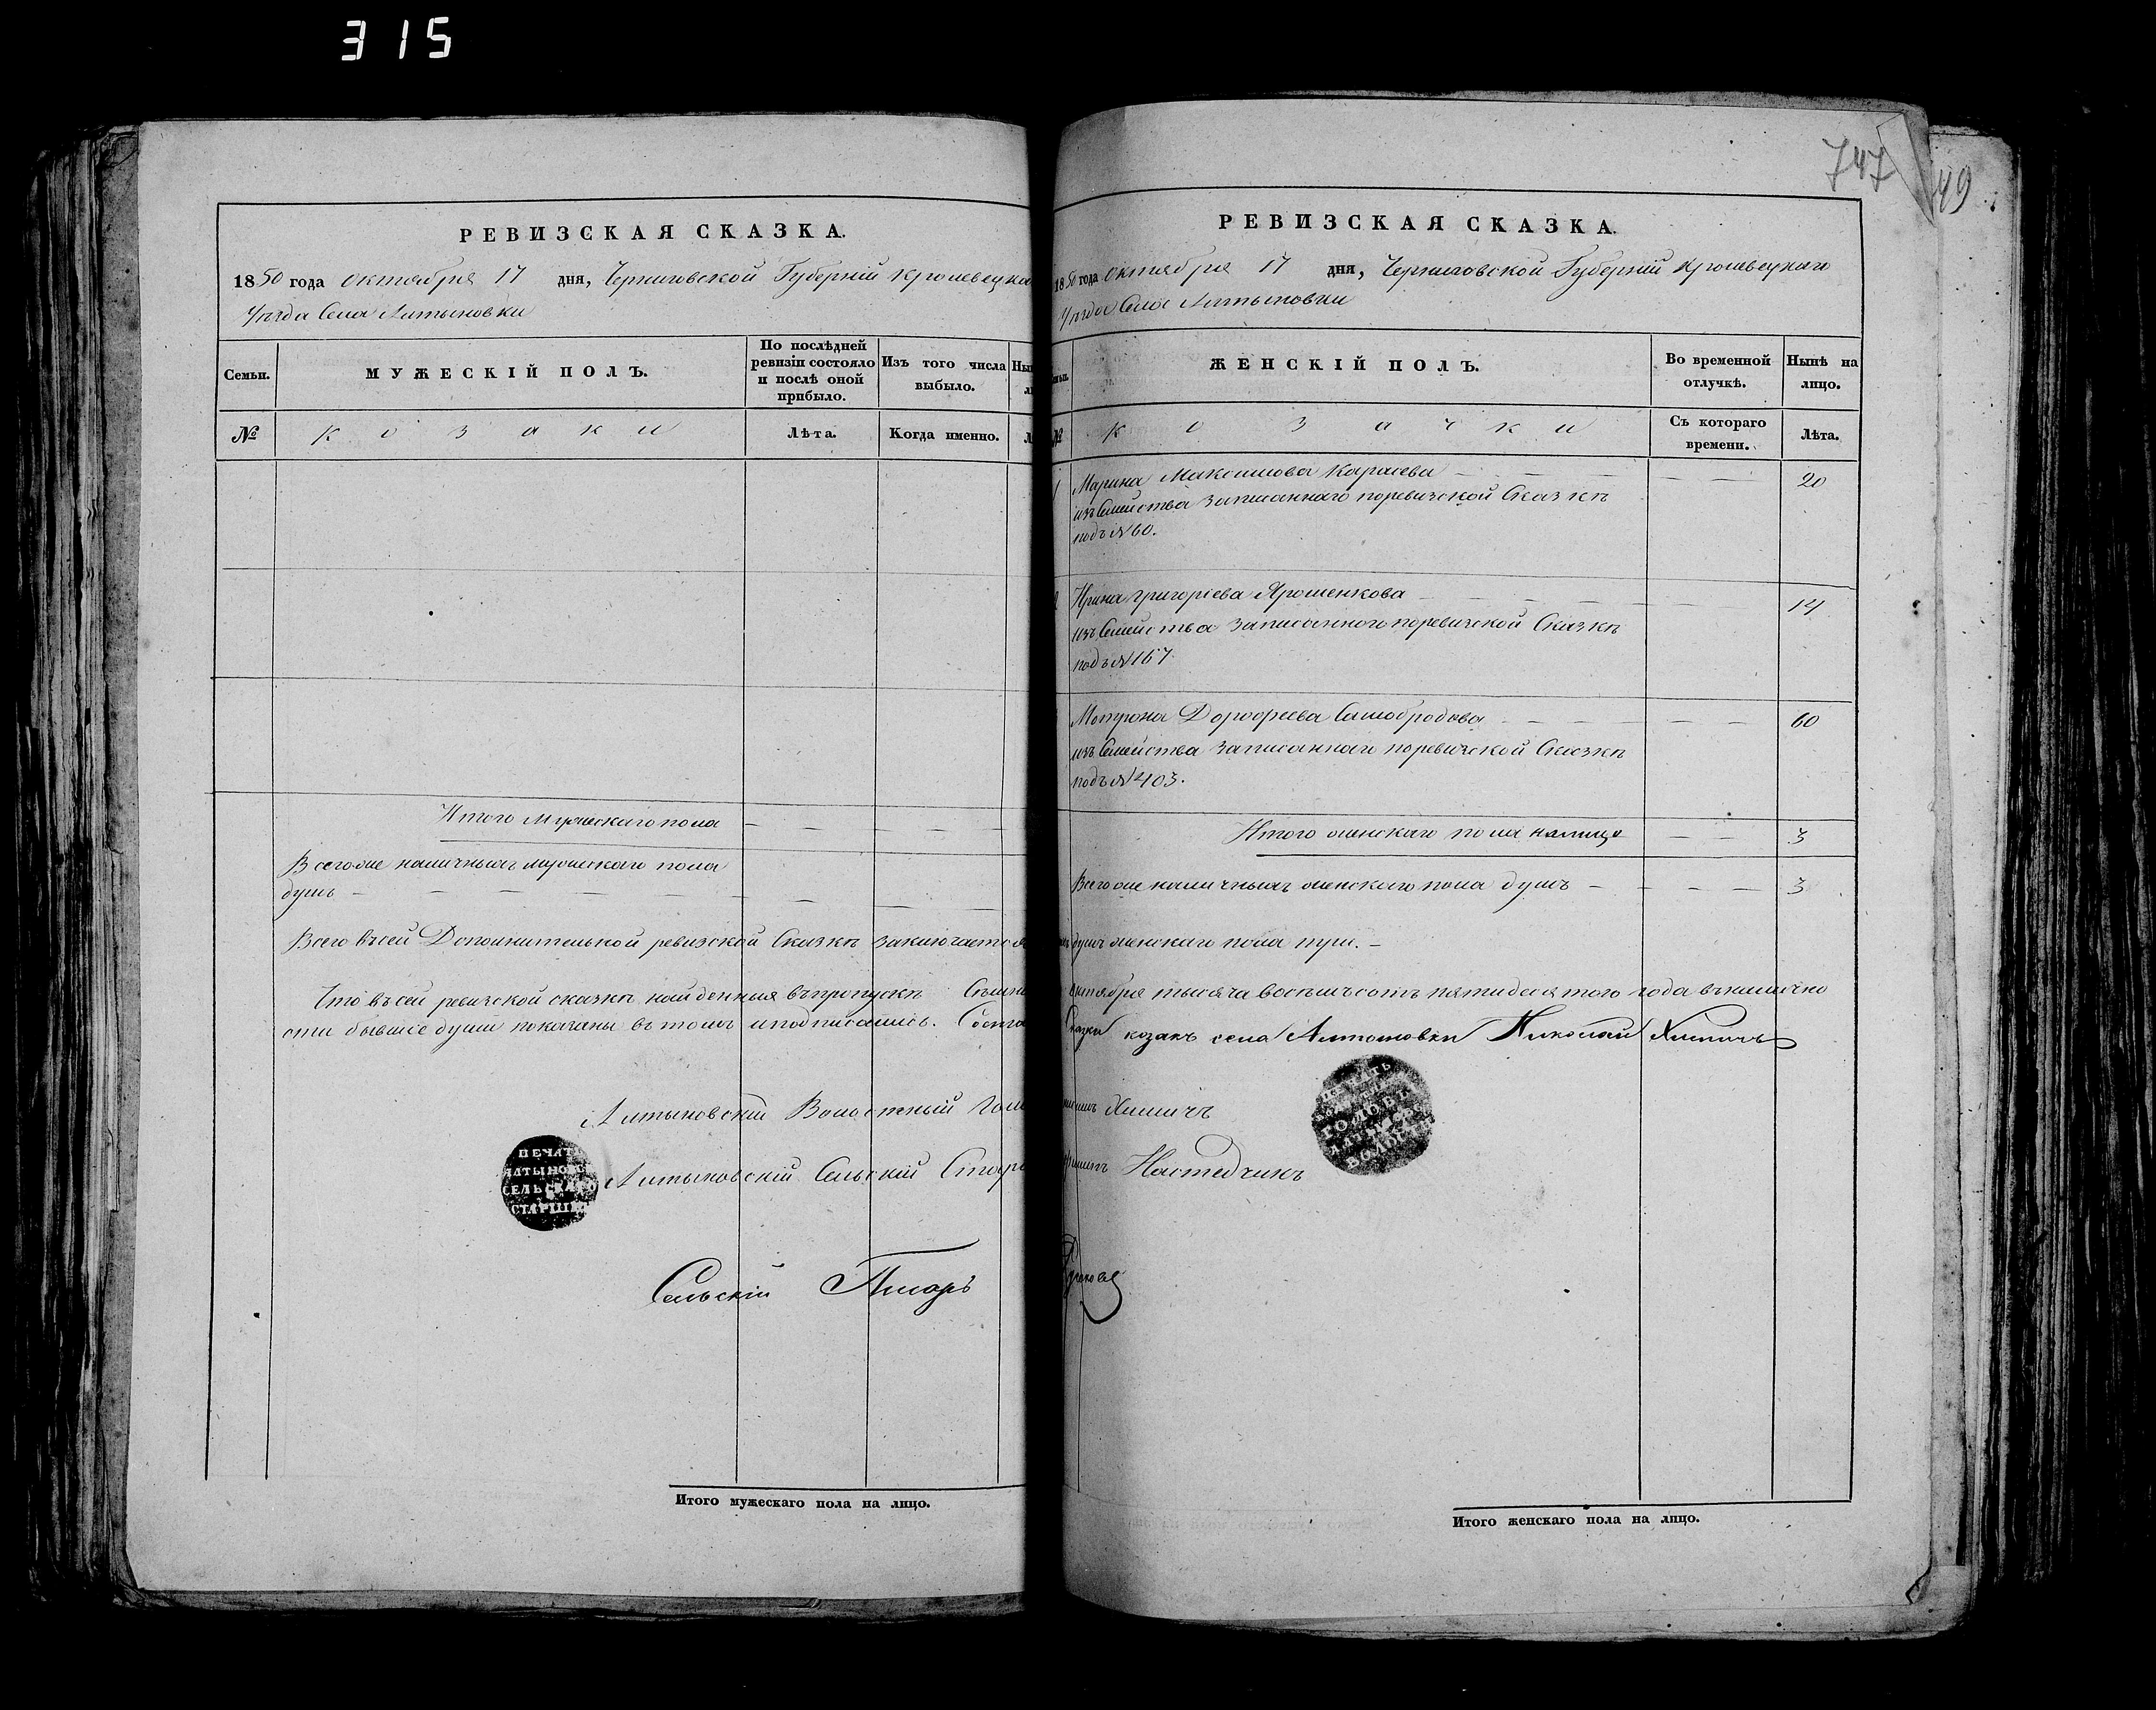 315
РЕВИЗСКАЯ СКАЗКА.
1850 года октября 17 дня, Черниговской Губерніи Кролевецка
Уѣзда Села Алтыновки
Семьи.
МУЖЕСКІЙ ПОЛЪ.
По послѣдней ревизіи состояло и послѣ оной прибыло.
Изъ того числа выбыло.
№
козаки
Лѣта.
Когда именно.
Итого мужескаго пола
Всего же наличныхъ мужескаго пола
душъ
Всего въ сей Дополнительной ревизской Сказкѣ заключается
Что въ сей ревизской сказкѣ найденныя въ пропускѣ
сти бывшіе души показаны въ томъ и подписались.
Алтыновскій Волостный Голо
ПЕЧАТ
АЛТЫНОВС
СЕЛЬСКАГО
СТАРШИ
Алтыновскій Сельскій Стар
Сельскій Писарь
Итого мужескаго пола на лицо.
747
49
РЕВИЗСКАЯ СКАЗКА.
1850 года Октября 17 дня, Черниговской Губерніи Кролевецкаго
Уѣзда Села Алтыновки
ЖЕНСКІЙ ПОЛЪ.
Во временной отлучкѣ.
Нынѣ на лицо.
№
козачки
Съ котораго времени.
Лѣта.
1 Марина Максимова Карасева 20
изъ Семейства записаннаго по ревизской Сказкѣ
подъ №60.
Ирина Григоріева Ярошенкова 14
изъ Семейства записанного по ревизской Сказкѣ
подъ №167.
Мотрона Дорофеева Самобродова 60
изъ Семейства записаннаго по ревизской Сказкѣ
подъ №403.
Итого женскаго пола налицо 3
Всего же наличныхъ женскаго пола душъ 3
душъ женскаго пола три.
октября тысяча восемьсотъ пятидесятого года въ налично
Сказки козакъ села Алтыновки Николай Химичъ
Химичъ
ПЕЧАТЬ
ГОЛОВЫ
Итого женскаго пола на лицо.